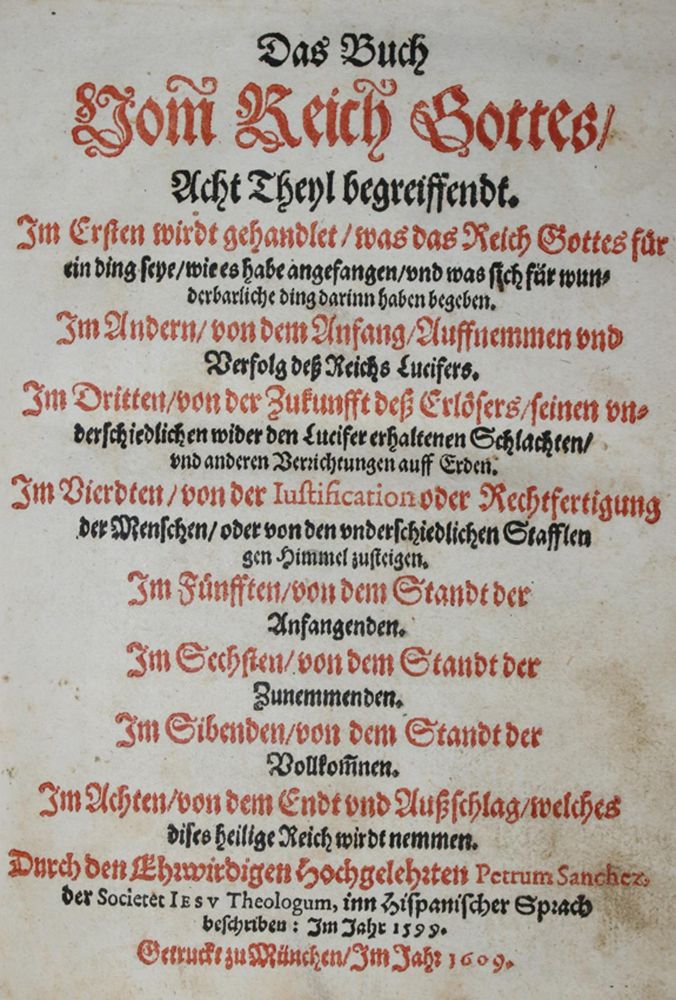 Das Buch
Vom̃ Reich Gottes/
Acht Theyl begreiffendt.
Im Ersten wirdt gehandlet/was das Reich Gottes für
ein ding seye/wie es habe angefangen/vnd was sich für wun-
derbarliche ding darinn haben begeben.
Im Andern/von dem Anfang/Auffnemmen vnd
Verfolg deß Reichs Lucifers.
Im Dritten/von der Zukunfft deß Erlösers/seinen vn-
derschiedlichen wider den Lucifer erhaltenen Schlachten/
vnd anderen Verrichtungen auff Erden.
Im Vierdten/von der Iustification oder Rechtfertigung
der Menschen/oder von den vnderschiedlichen Stafflen
gen Himmel zusteigen.
Im Fünfften/von dem Standt der
Anfangenden.
Im Sechsten/von dem Standt der
Zunemmenden.
Im Sibenden/von dem Standt der
Vollkom̃nen.
Im Achten/von dem Endt vnd Außschlag/welches
dises heilige Reich wirdt nemmen.
Durch den Ehrwirdigen Hochgelehrten Petrum Sanchez,
der Societèt IESV Theologum, inn Hispanischer Sprach
beschriben: Im Jahr 1599.
Getruckt zu München/Im Jahr 1609.